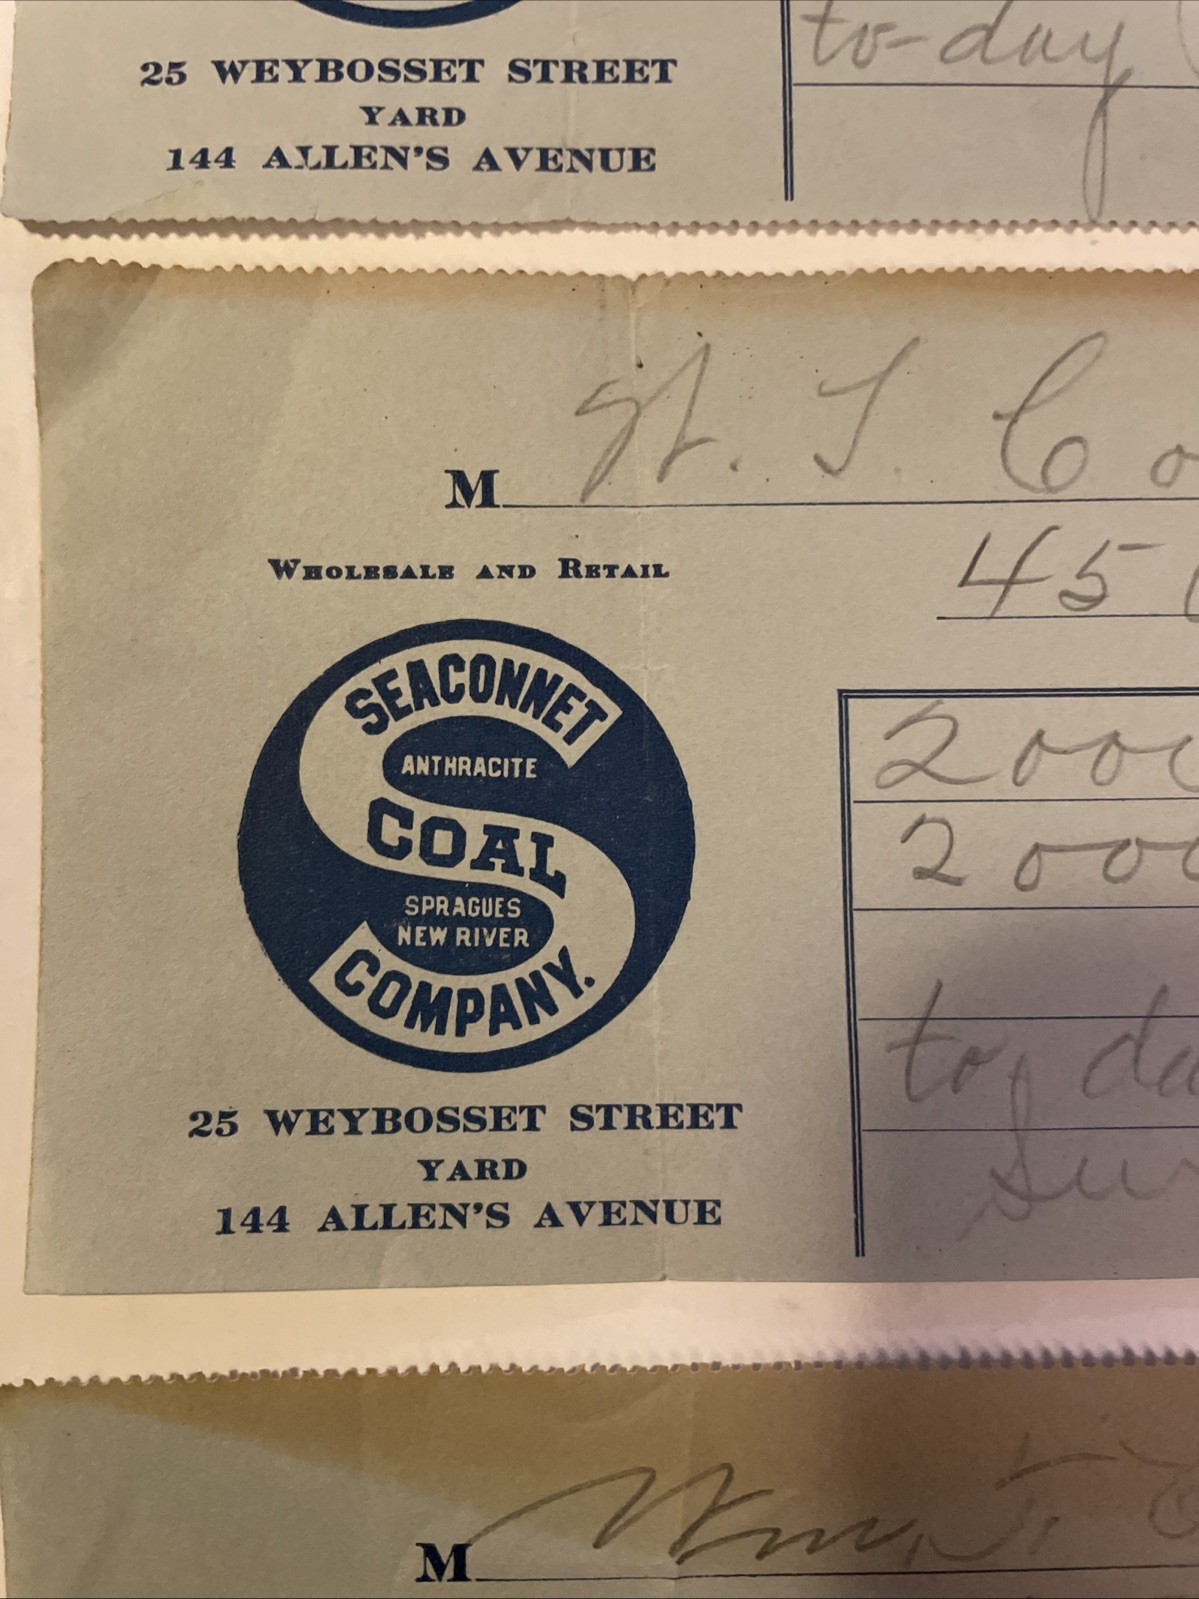 to-day
25 WEYBOSSET STREET
YARD
144 ALLEN'S AVENUE
M
WHOLESALE AND RETAIL
45
SEACONNET
ANTHRACITE
COAL
SPRAGUES
NEW RIVER
COMPANY.
2000
2000
to, da
25 WEYBOSSET STREET
YARD
144 ALLEN'S AVENUE
M Wm.